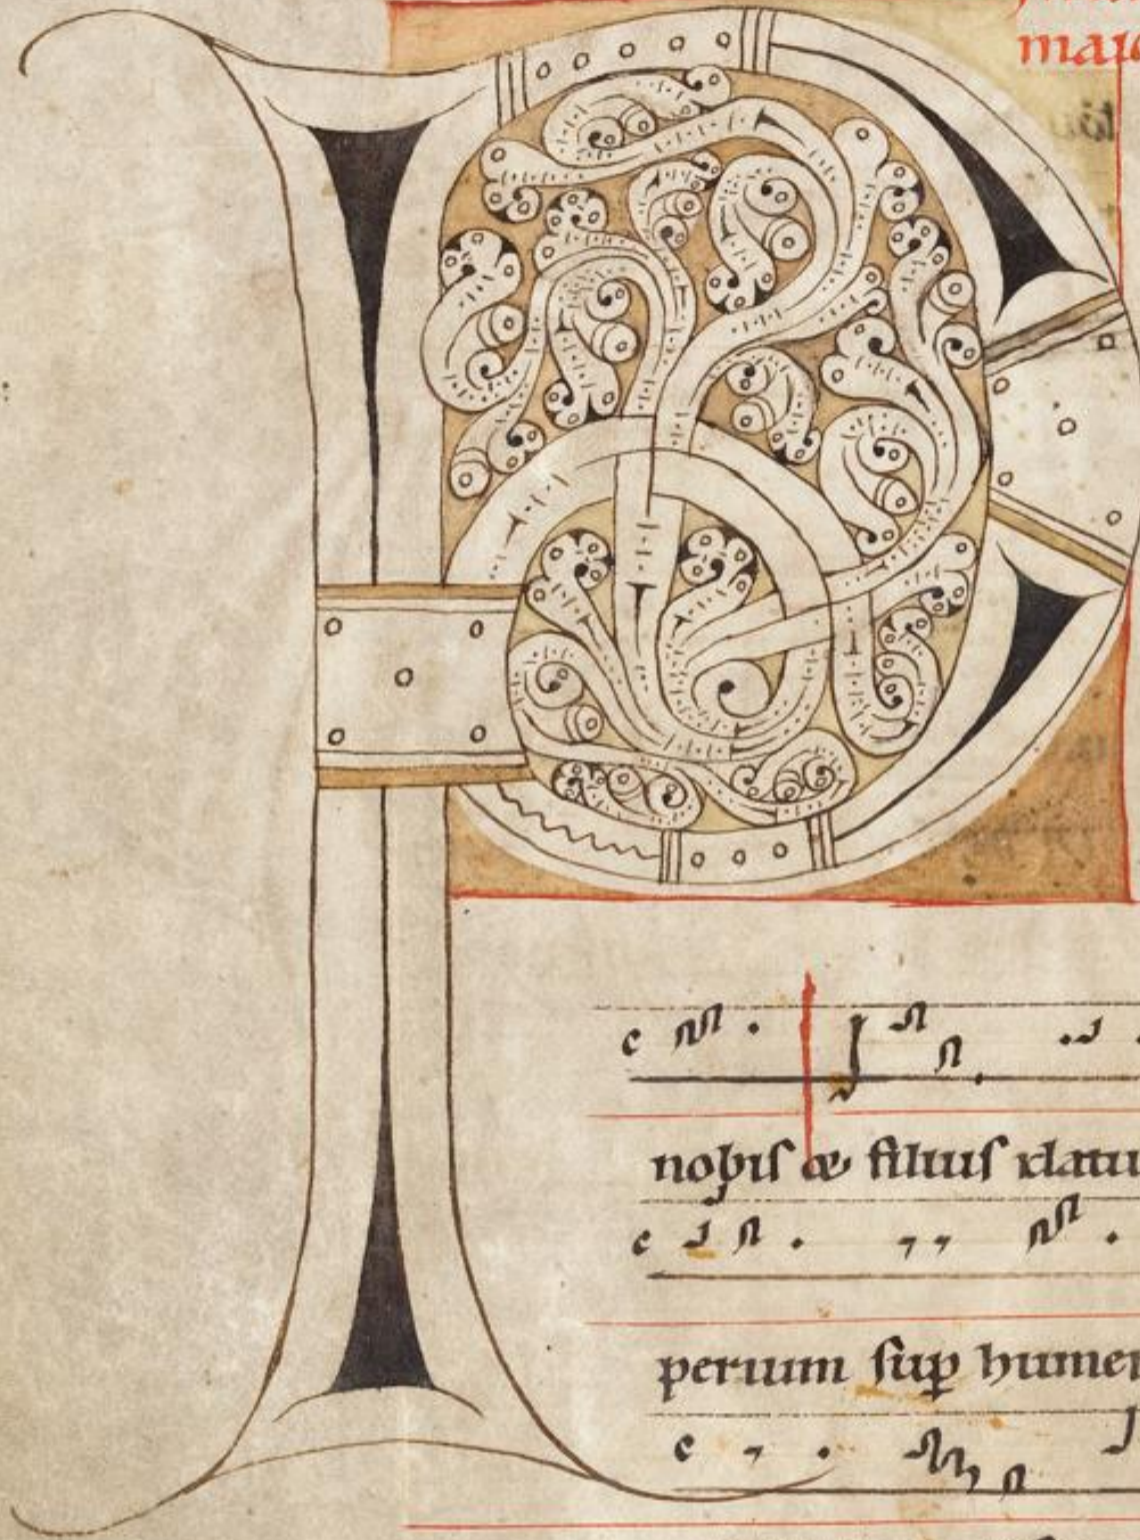 P
maio
nobis & filius datu
perium sup humer